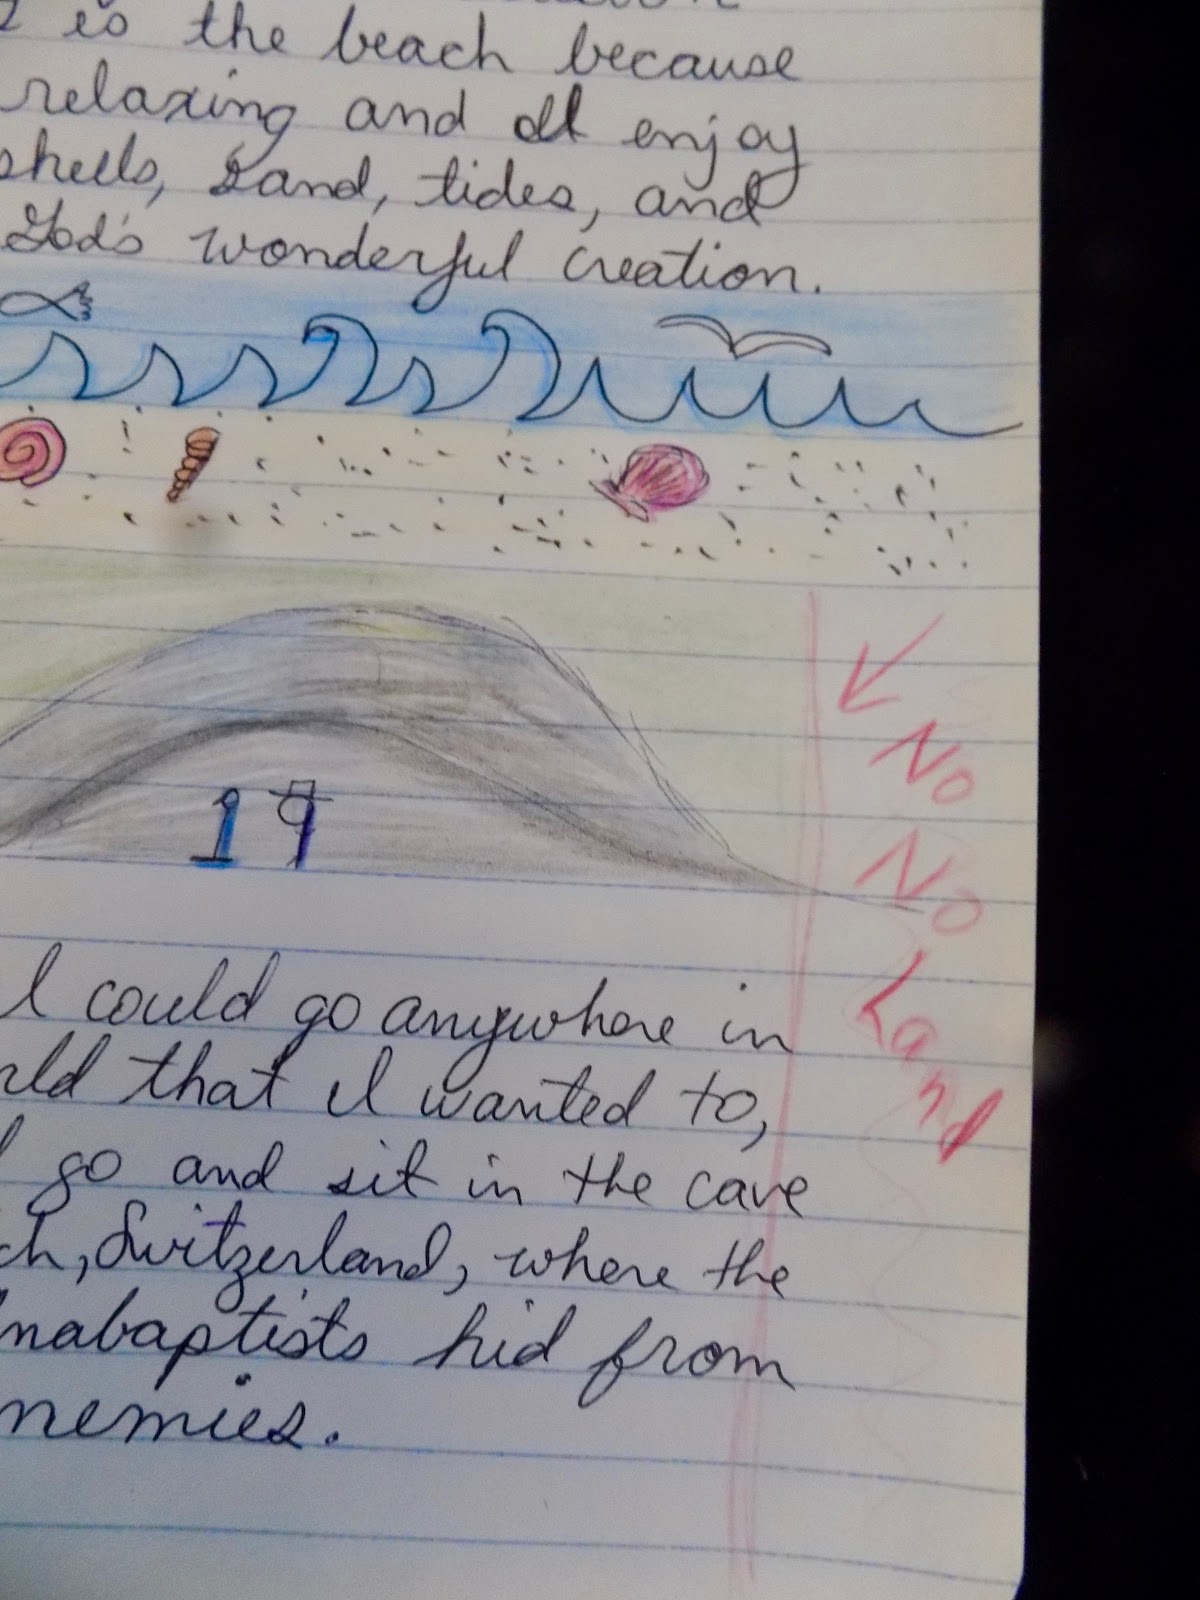 is the beach because
relaxing and enjoy
shells, sand, tides, and
God's wonderful creation.
19
No
No
Land
I could go anywhere in
rld that I wanted to,
go and sit in the cave
ch, Switzerland, where the
nabaptists hid from
nemies.